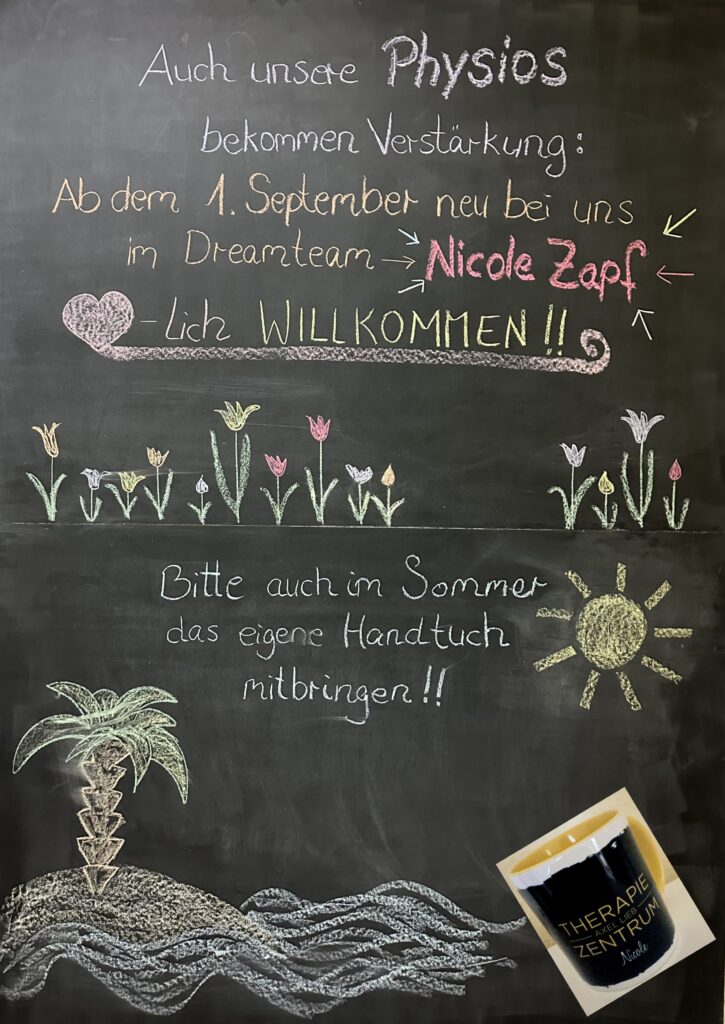 Auch unsere Physios
bekommen Verstärkung:
Ab dem 1. September neu bei uns
im Dreamteam → Nicole Zapf
-lich WILLKOMMEN!!
Bitte auch im Sommer
das eigene Handtuch
mitbringen!!
THERAPIE
AXEL LIEB
ZENTRUM
Nicole